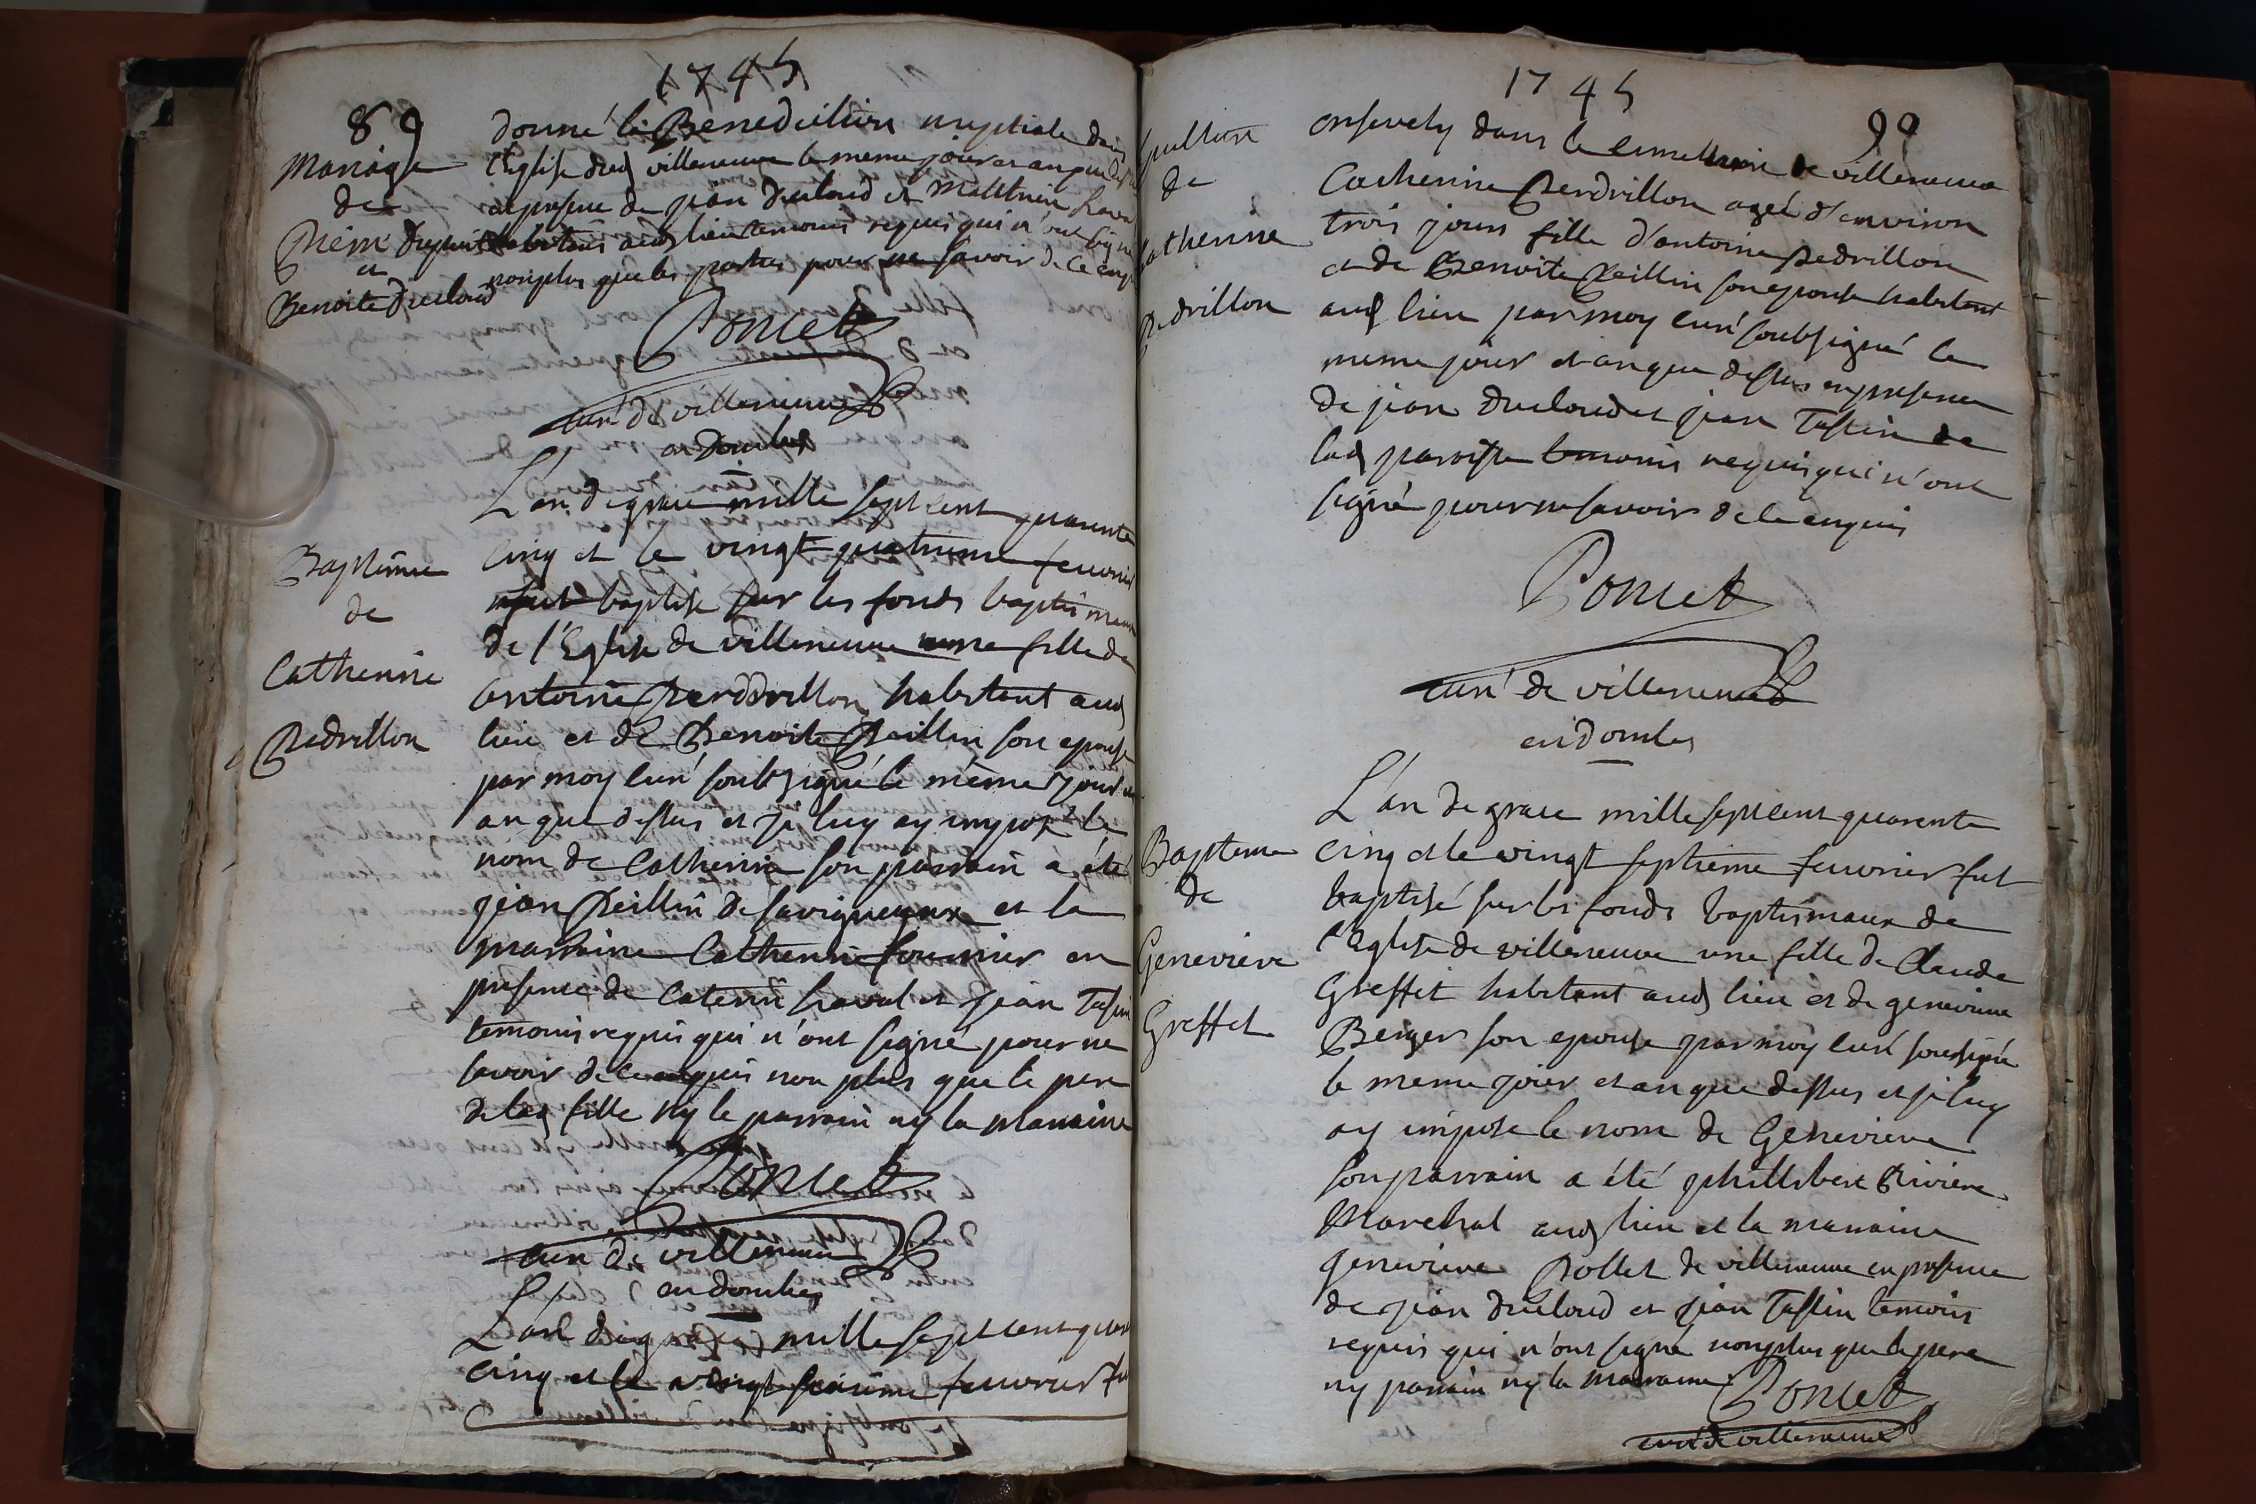 1745
89
donné la Benediction nuptiale dans
l'Eglise dud villeneuve le meme jour et an que dessus
en presence de jean Ducloud et Matthieu
habitans aud lieu temoins requis qui n'ont signé
nonplus que les parties pour ne savoir de ce enquis
Mariage
de
et
Benoite Ducloud
Poncet
curé de villeneuve
en Dombes
Baptême
de
Catherine
Pedrillon
L'an de grace mille sept cent quarente
cinq et le vingt quatrieme feuvrier
fut baptisé sur les fonds baptismaux
de l'Eglise de villeneuve une fille de
antoine Perdrillon habitant aud
lieu et de Benoite Peillin son epouse
par moy curé soubsigné le même jour et
an que dessus et je luy ay imposé le
nom de Catherine son parrain a été
jean Peillin de savigneux et la
marraine Catherine fournier en
presence de Caterin et jean Tassin
temoins requis qui n'ont signé pour ne
savoir de ce enquis non plus que le pere
de lad fille ny le parrain ny la marraine
Poncet
curé de villeneuve
en dombes
L'an de grace mille sept cent quarente
cinq et le vingt sixième feuvrier fut
1745
90
de
Catherine
Pedrillon
ensevely dans le cimetiere de villeneuve
Catherine Perdrillon ageé d'environ
trois jours fille d'antoine Pedrillon
et de Benoite Peillin son epouse habitant
aud lieu par moy curé soubsigné le
meme jour et an que dessus en presence
de jean Ducloud et jean Tassin de
lad paroisse temoins requis qui n'ont
signé pour ne savoir de ce enquis
Poncet
curé de villeneuve
en dombes
Bapteme
de
Genevieve
Greffet
L'an de grace mille sept cent quarente
cinq et le vingt septieme feuvrier fut
baptisé sur les fonds baptismaux de
l'Eglise de villeneuve une fille de Claude
Greffet habitant aud lieu et de genevieve
Berger son epouse par moy curé soussigné
le meme jour et an que dessus et je luy
ay imposé le nom de Genevieve
son parrain a été philibert Riviere
Marechal aud lieu et la marraine
genevieve Pollet de villeneuve en presence
de jean Ducloud et jean Tassin temoins
requis qui n'ont signé nonplus que le pere
ny parrain ny la marraine Poncet
curé de villeneuve